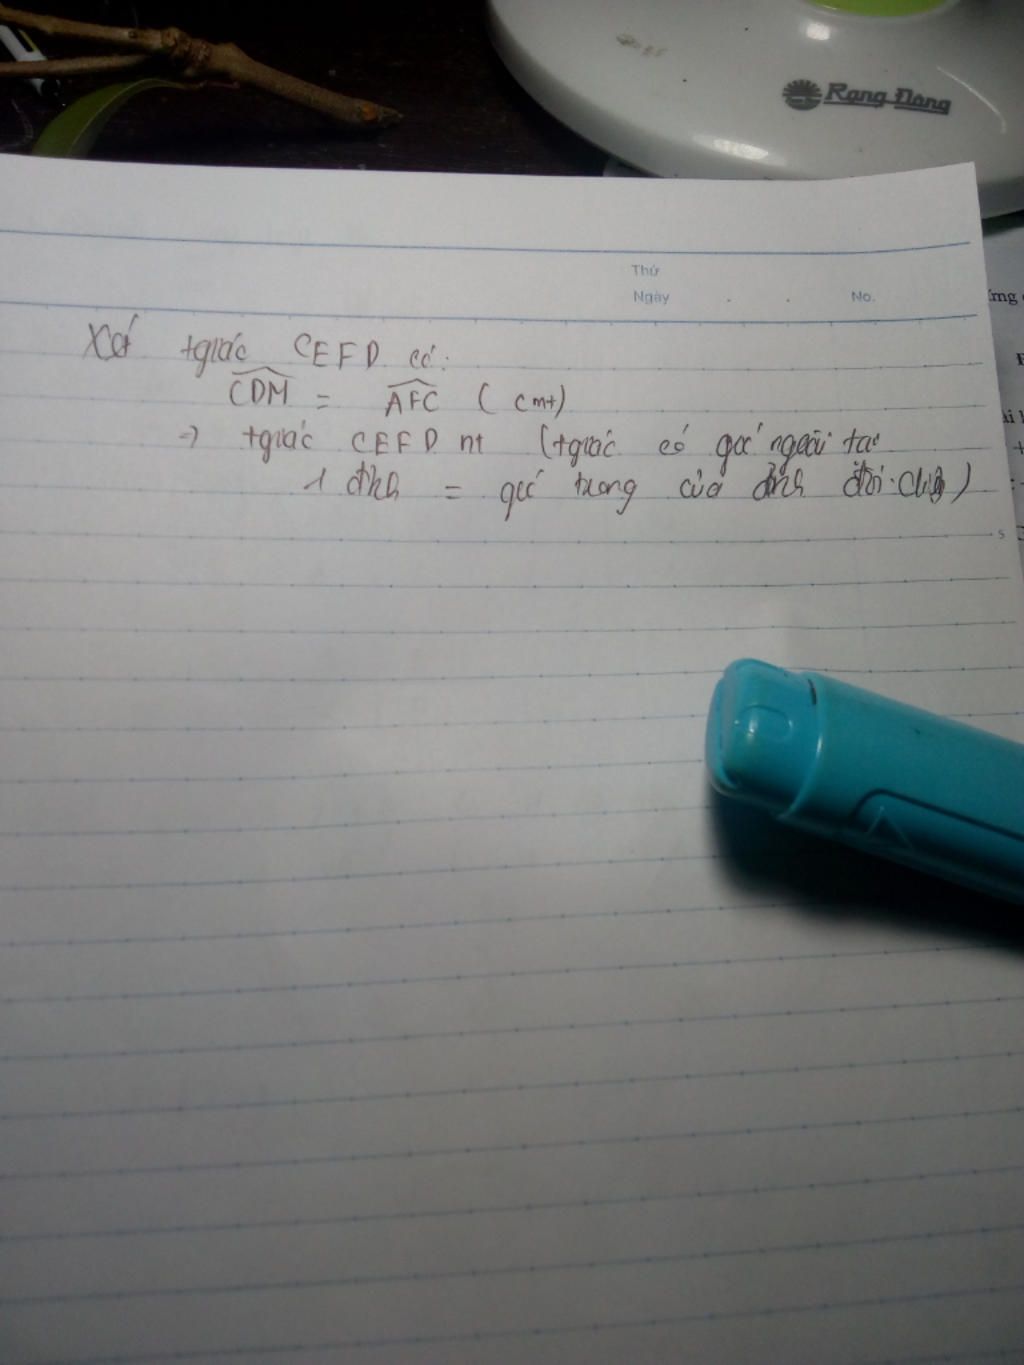 Rạng Đông
Thứ
Ngày . . No.
Xét tgiác CEFD có:
CDM = AFC (cmt)
→ tgiác CEFD nt (tgiác có góc ngoài tại
1 đỉnh = góc trong của đỉnh đối diện)
5